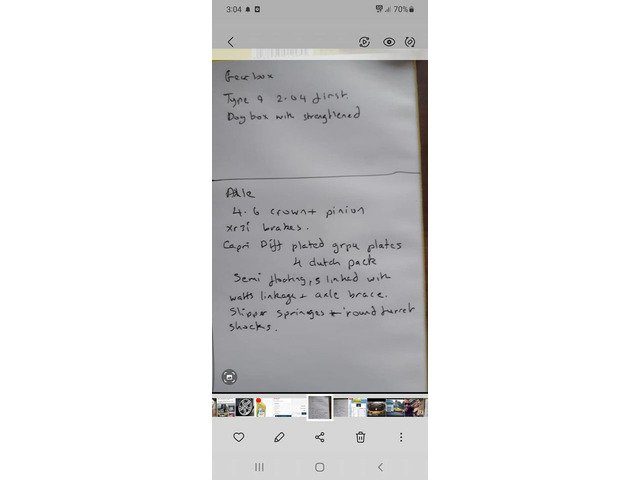 3:04
70%
Gearbox
Type 9 2.04 first.
Dog box with strengthened
Axle
4.6 crown + pinion
xr3i brakes.
Capri Diff plated grp4 plates
4 clutch pack
Semi floating, 5 linked with
watts linkage + axle brace.
Slipper springes + round turret
shocks.